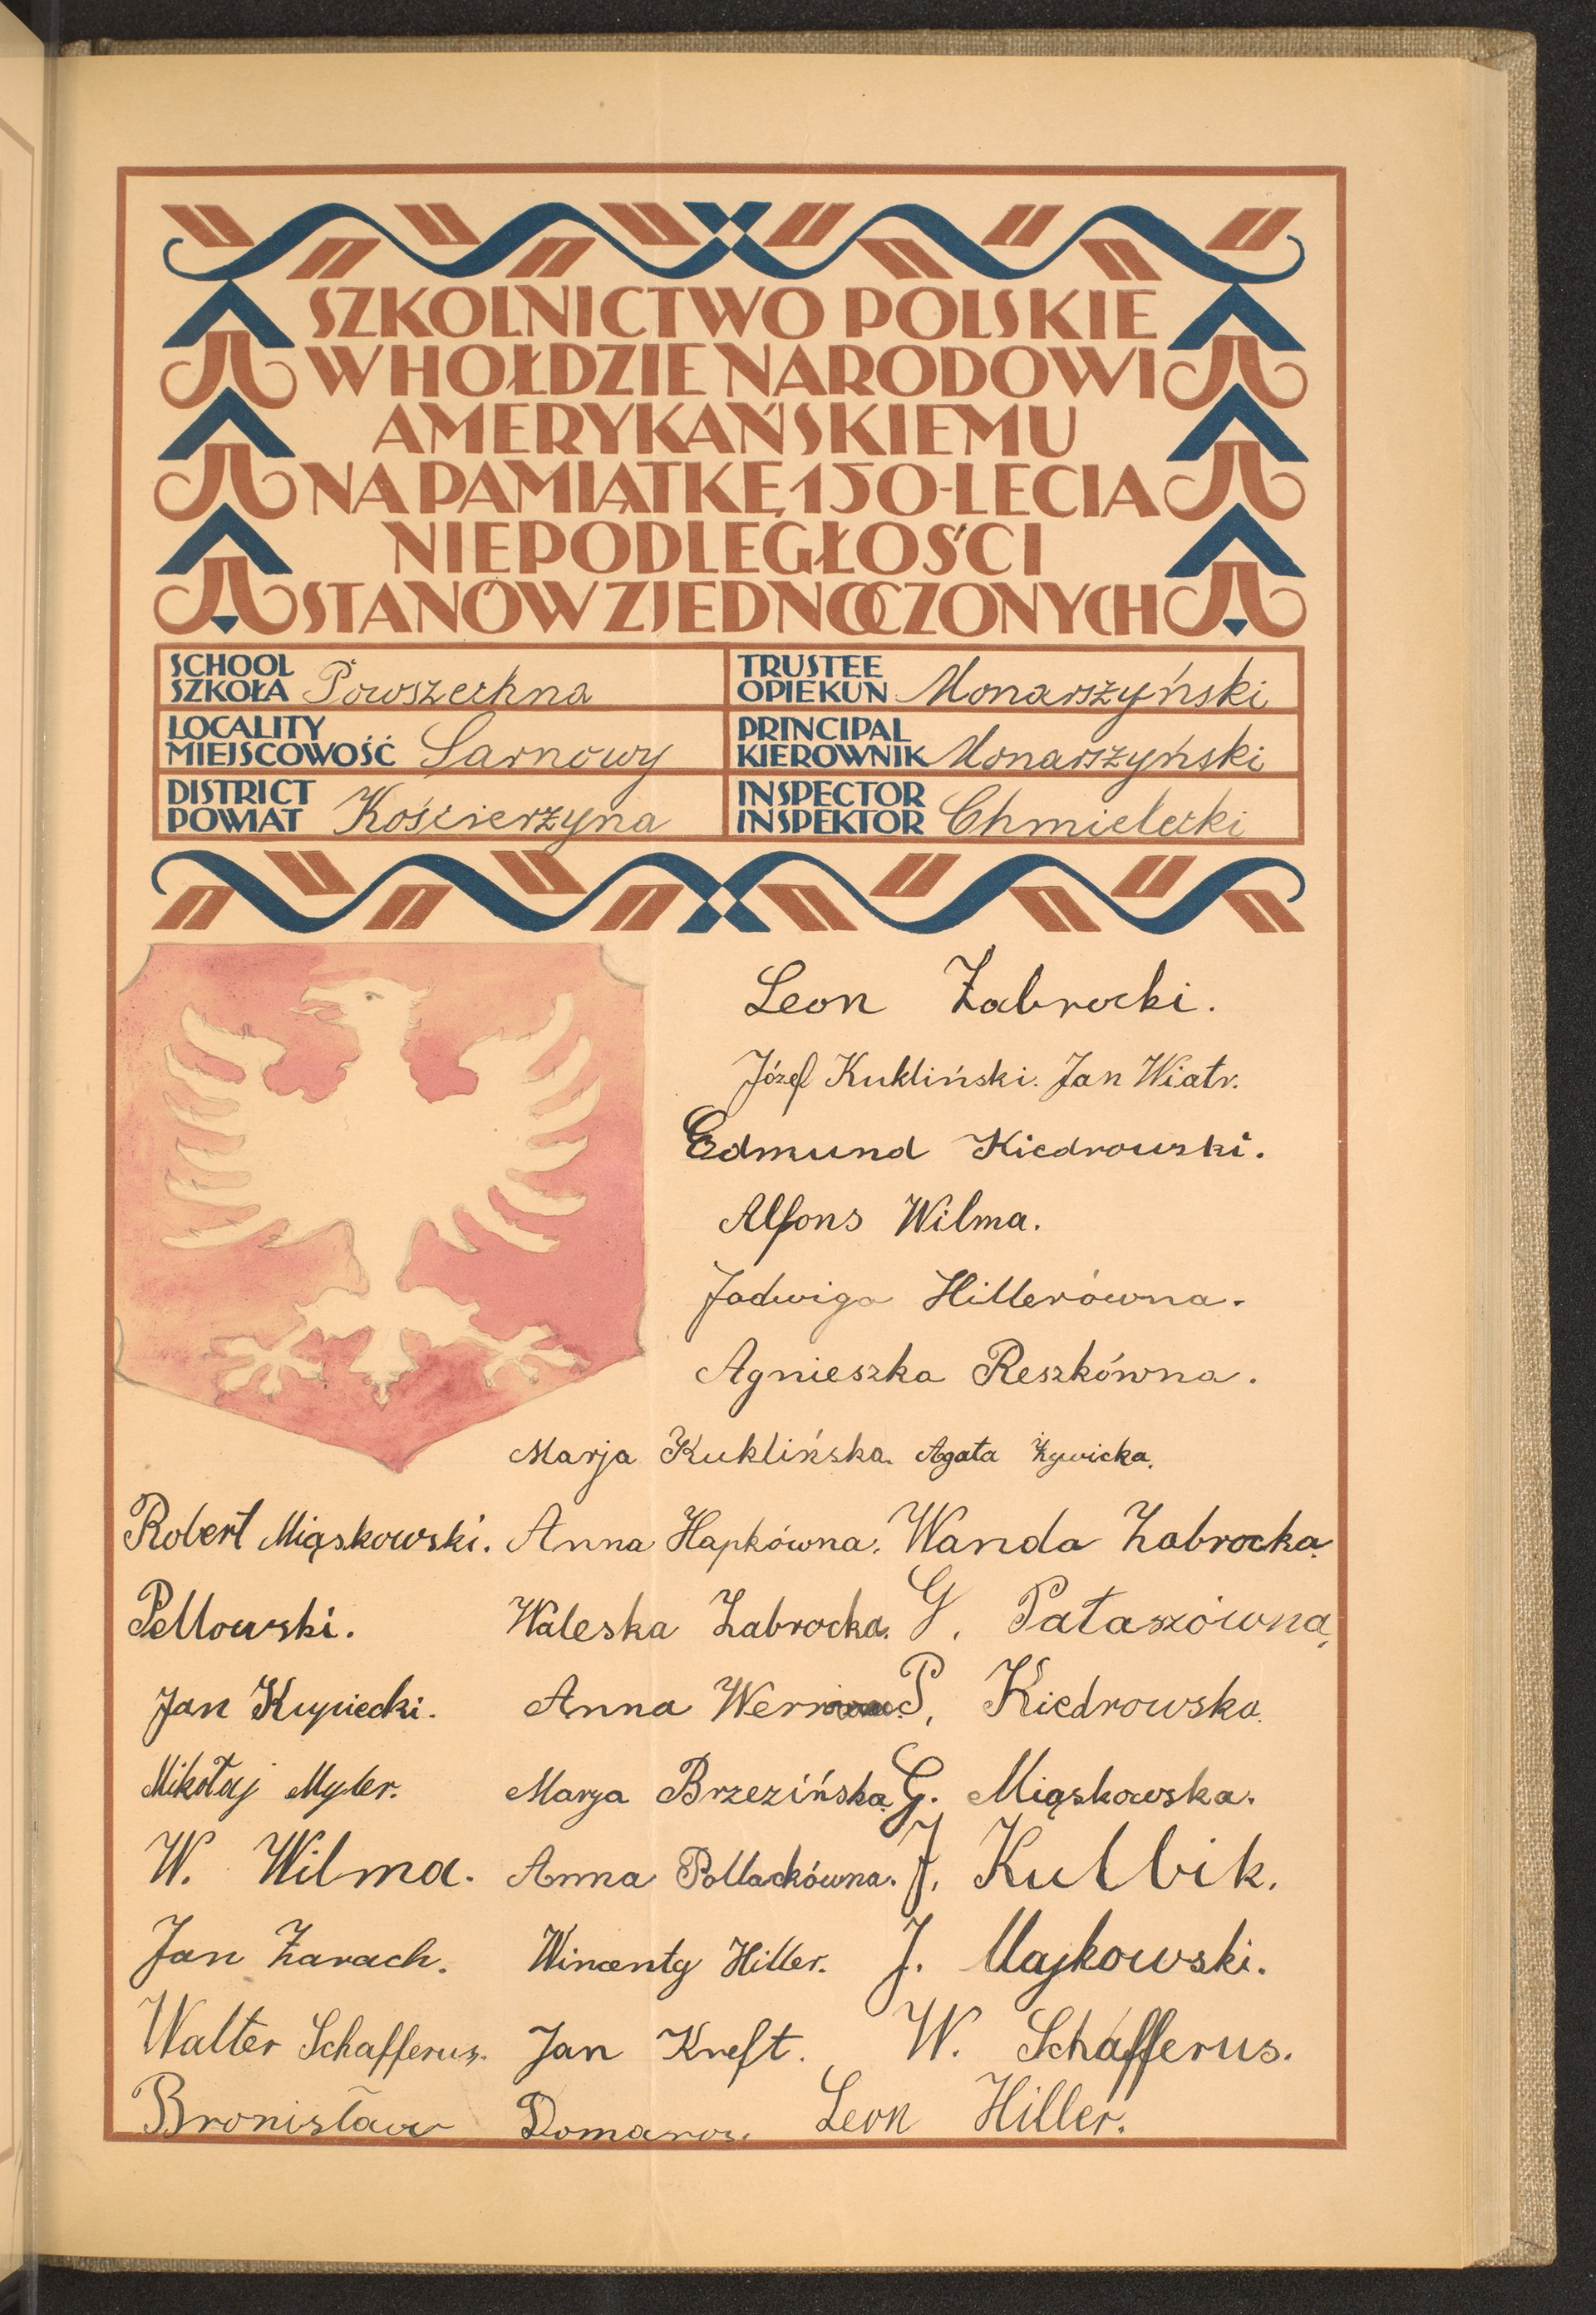 SZKOLNICTWO POLSKIE
W HOŁDZIE NARODOWI
AMERYKAŃSKIEMU
NA PAMIĄTKĘ 150-LECIA
NIEPODLEGŁOŚCI
STANÓW ZJEDNOCZONYCH
SCHOOL
SZKOŁA Powszechna
TRUSTEE
OPIEKUN Monarszyński
LOCALITY
MIEJSCOWOŚĆ Sarnowy
PRINCIPAL
KIEROWNIK Monarszyński
DISTRICT
POWIAT Kościerzyna
INSPECTOR
INSPEKTOR Chmielecki
Leon Żabrocki.
Józef Kukliński. Jan Wiatr.
Edmund Kiedrowski.
Alfons Wilma.
Jadwiga Hillerówna.
Agnieszka Reszkówna.
Marja Kuklińska. Agata Żywicka.
Robert Miąskowski. Anna Hapkówna. Wanda Żabrocka
Pellowski. Waleska Żabrocka. G. Pałaszówna,
Jan Kupiecki. Anna P. Kiedrowska.
Mikołaj Myler. Marja Brzezińska. G. Miąskowska.
W. Wilma. Anna Pollackówna. J. Kulbik.
Jan Żarach. Wincenty Hiller. J. Majkowski.
Walter Schafferus. Jan Kreft. W. Schafferus.
Bronisław Domaros. Leon Hiller.